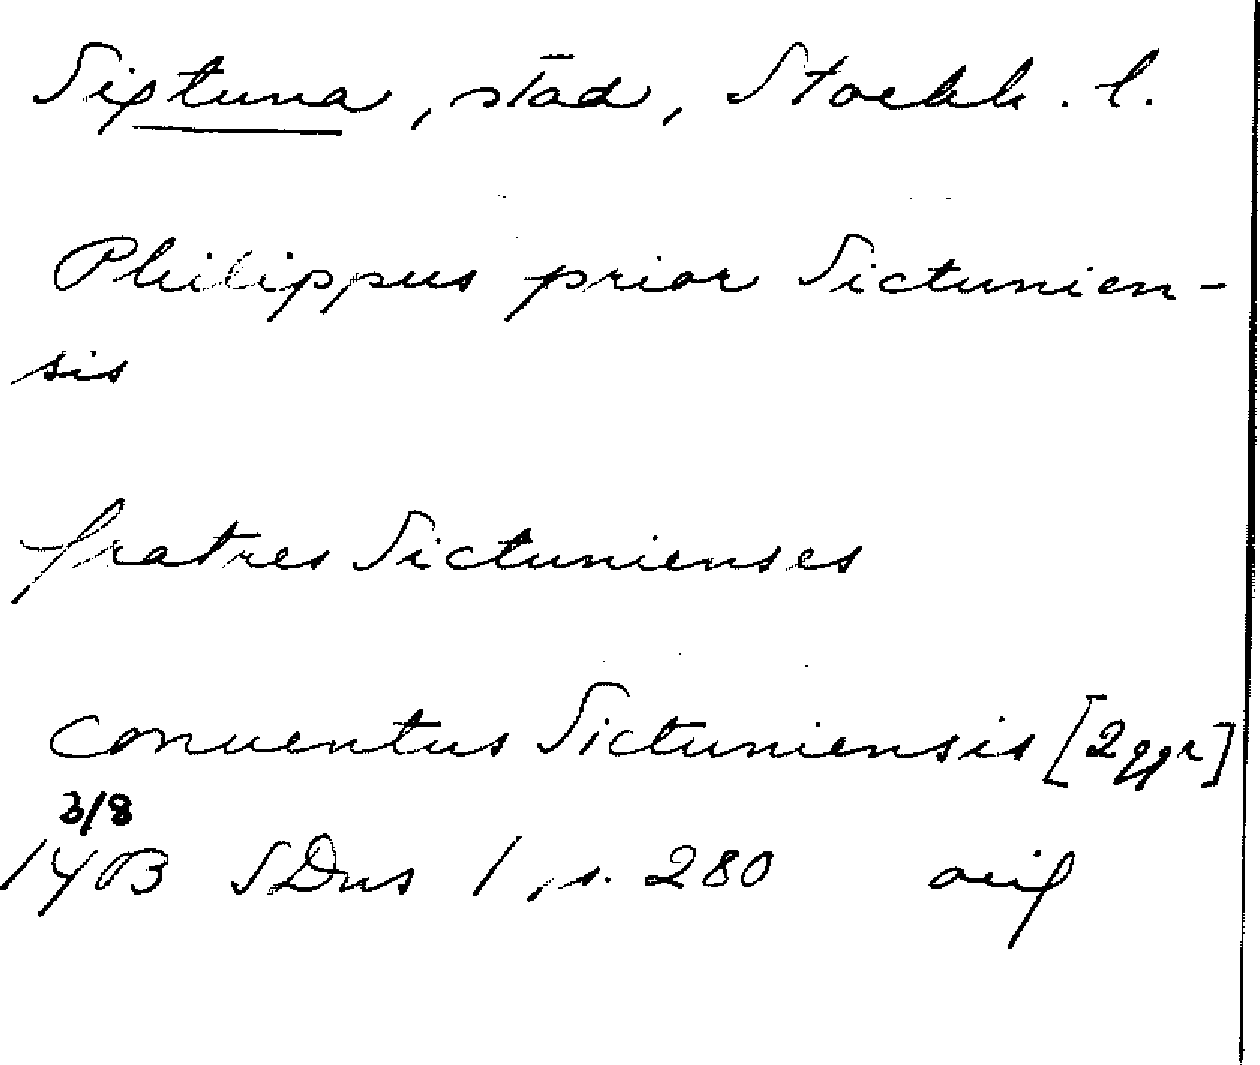 Sigtuna, stad, Stockh. l.
Philippus prior Sictunien-
sis
fratres Sictunienses
conuentus Sictuniensis [2 ggr]
3/8
1403 SDns 1, s. 280 orig